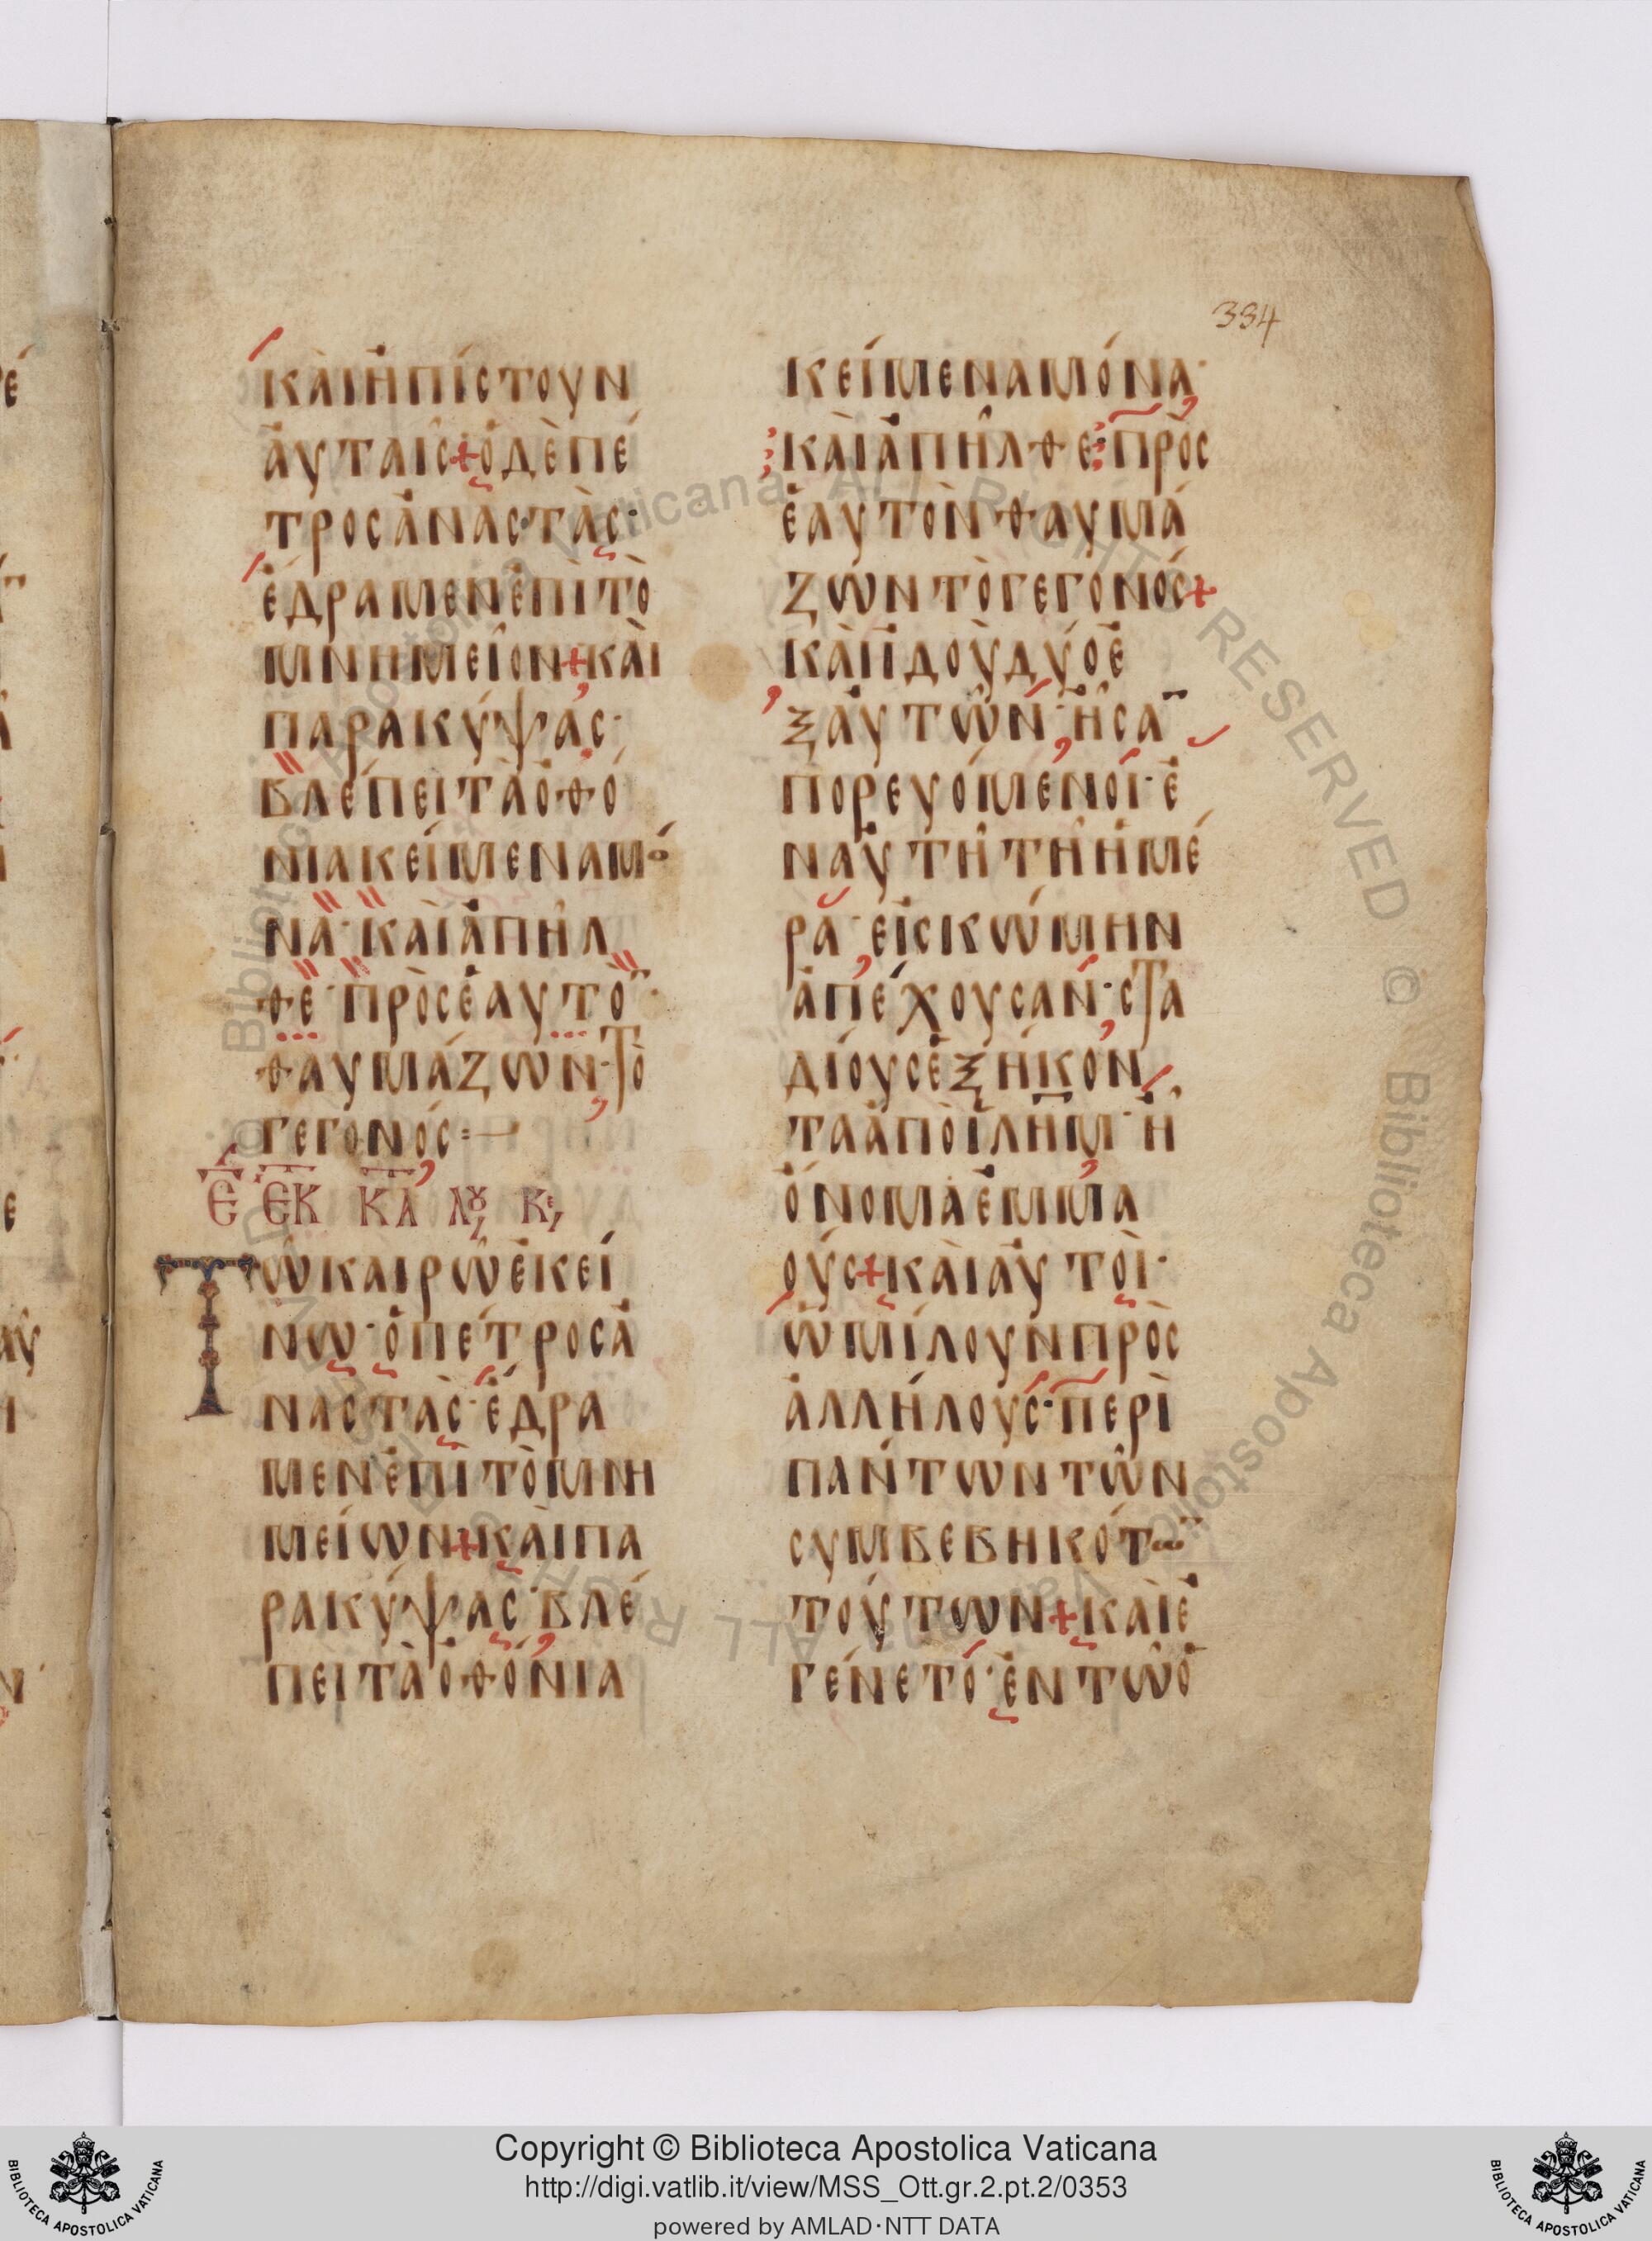 334
καὶ ἠπίστουν
ἀυταῖς + ὁ δὲ πέ
τρος ἀναστὰς·
ἔδραμεν ἐπὶ τὸ
μνημεῖον + καὶ
παρακύψας·
βλέπει τὰ ὀθό
νια κείμενα μό
να· καὶ ἀπῆλ
θε· πρὸς ἑαυτο̄·
θαυμάζων· τὸ
γεγονός
Ε ΕΚ ΚΛ ΛΟΥ ΚΕ,
Τῶ καιρῶ ἐκεί
νω· ὁ πέτρος ἀ
ναστὰς· ἔδρα
μεν ἐπὶ τὸ μνη
μείων + καὶ πα
ρακύψας· βλέ
πει τὰ ὀθόνια
κείμενα μόνα·
καὶ ἀπῆλθε· πρὸς
ἑαυτὸν θαυμά
ζων τὸ γεγονός +
καὶ ϊδοὺ δύο ἐ
ξ αὐτῶν· ἦσᾱ
πορευόμενοι· ἐ
ν αὐτῆ τῆ ἡμέ
ρα· εἰς κώμην
ἀπέχουσαν· στα
δίους ἑξήκον
τα ἀπὸ ϊλημ· ἧ
ὄνομα ἐμμα
ούς + καὶ αὐτοὶ·
ὡμίλουν πρὸς
ἀλλήλους· περὶ
πάντων τῶν
συμβεβηκότω̄
τούτων + καὶ ἐ
γένετό· ἐν τῶ ὁ
Copyright © Biblioteca Apostolica Vaticana
http://digi.vatlib.it/view/MSS_Ott.gr.2.pt.2/0353
powered by AMLAD·NTT DATA
BIBLIOTECA APOSTOLICA VATICANA
BIBLIOTECA APOSTOLICA VATICANA